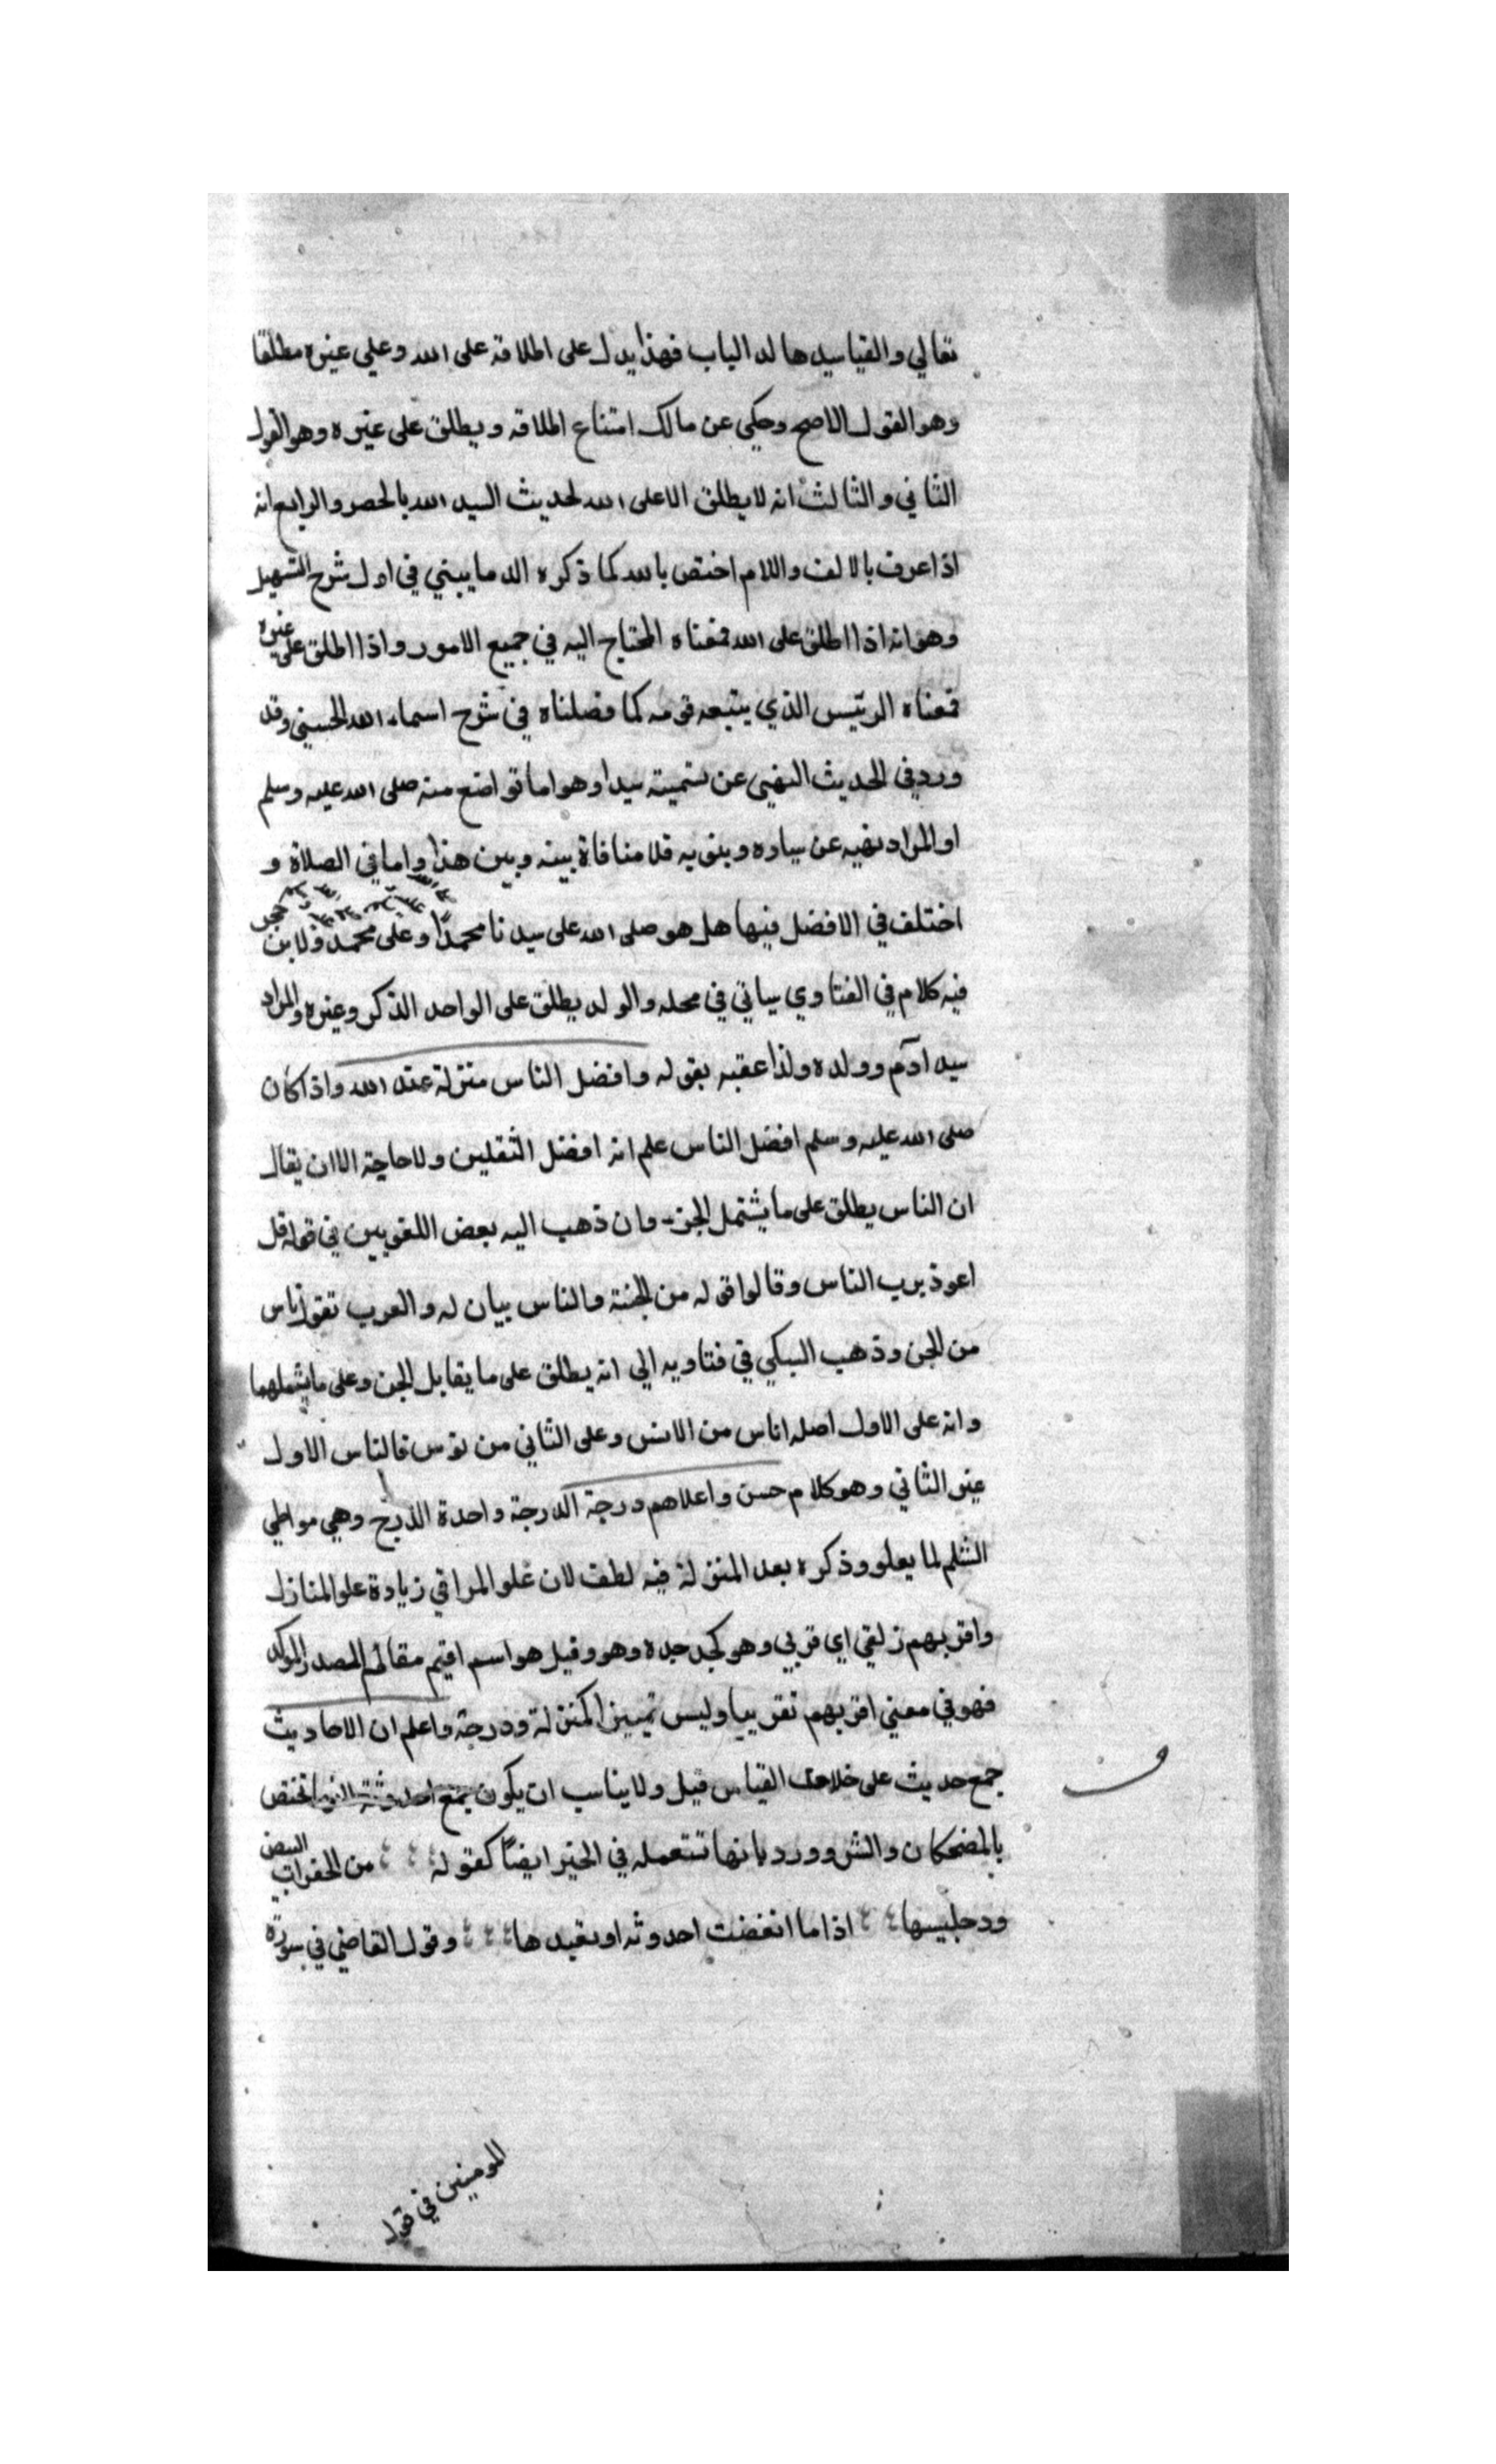 تعالي والقيا سيدها لدا الباب فهذا يدل على اطلاقه على الله وعلي غيره مطلقا
وهو القول الاصح وحكي عن مالك امتناع اطلاقه ويطلق على غيره وهو القول
الثاني والثالث انه لا يطلق الا على الله لحديث السيد الله بالحصر والرابع انه
اذا عرف بالالف واللام اختص بالله كما ذكره الدماميني في اول شرح التسهيل
وهو انه اذا اطلق على الله فمعناه المحتاج اليه في جميع الامور واذا اطلق على غيره
فمعناه الرئيس الذي يتبعه قومه كما فصلناه في شرح اسماء الله الحسني وقد
ورد في الحديث النهي عن تسميته سيدا وهو اما تواضع منه صلى الله عليه وسلم
او المراد نهيه عن فلا منافاة بينه وبين هذا واما في الصلاة و
اختلف في الافضل فيها هل هو صلى الله على سيدنا محمد او على محمد ولابن حجر
فيه كلام في الفتاوي سياتي في محله والولد يطلق على الواحد الذكر وغيره والمراد
سيد آدم وولده ولذا عقبه بقوله وافضل الناس منزلة عند الله واذا كان
صلى الله عليه وسلم افضل الناس علم انه افضل الثقلين ولا حاجة الا ان يقال
ان الناس يطلق على ما يشتمل الجن وان ذهب اليه بعض اللغويين في قوله قل
اعوذ برب الناس وقالوا قوله من الجنة والناس بيان له والعرب تقول ناس
من الجن وذهب السبكي في فتاويه الي انه يطلق على ما يقابل الجن وعلى ما يشملهما
وانه على الاول اصله اناس من الانس وعلى الثاني من نوس فالناس الاول
غير الثاني وهو كلام حسن واعلاهم درجة الدرجة واحدة الدرج وهي مواطي
السلم لما يعلو وذكره بعد المنزلة فيه لطف لان علو المراقي زيادة علو المنازل
واقربهم زلفي اي قربي وهو كجد جده وهو وقيل هو اسم اقيم مقام المصدر الموكد
فهو في معني اقربهم تقريبا وليس تمييزا كمنزلة ودرجة واعلم ان الاحاديث
جمع حديث على خلاف القياس قيل ولا يناسب ان يكون جمع احدوثة لانها تختص
بالمضحكات والشر وورد بانها تستعمله في الخير ايضا كقوله من الخفرات البيض
ود جليسها اذا ما انقضت احدوثه او تعيدها وقول القاضي في سورة
المومنين في قوله